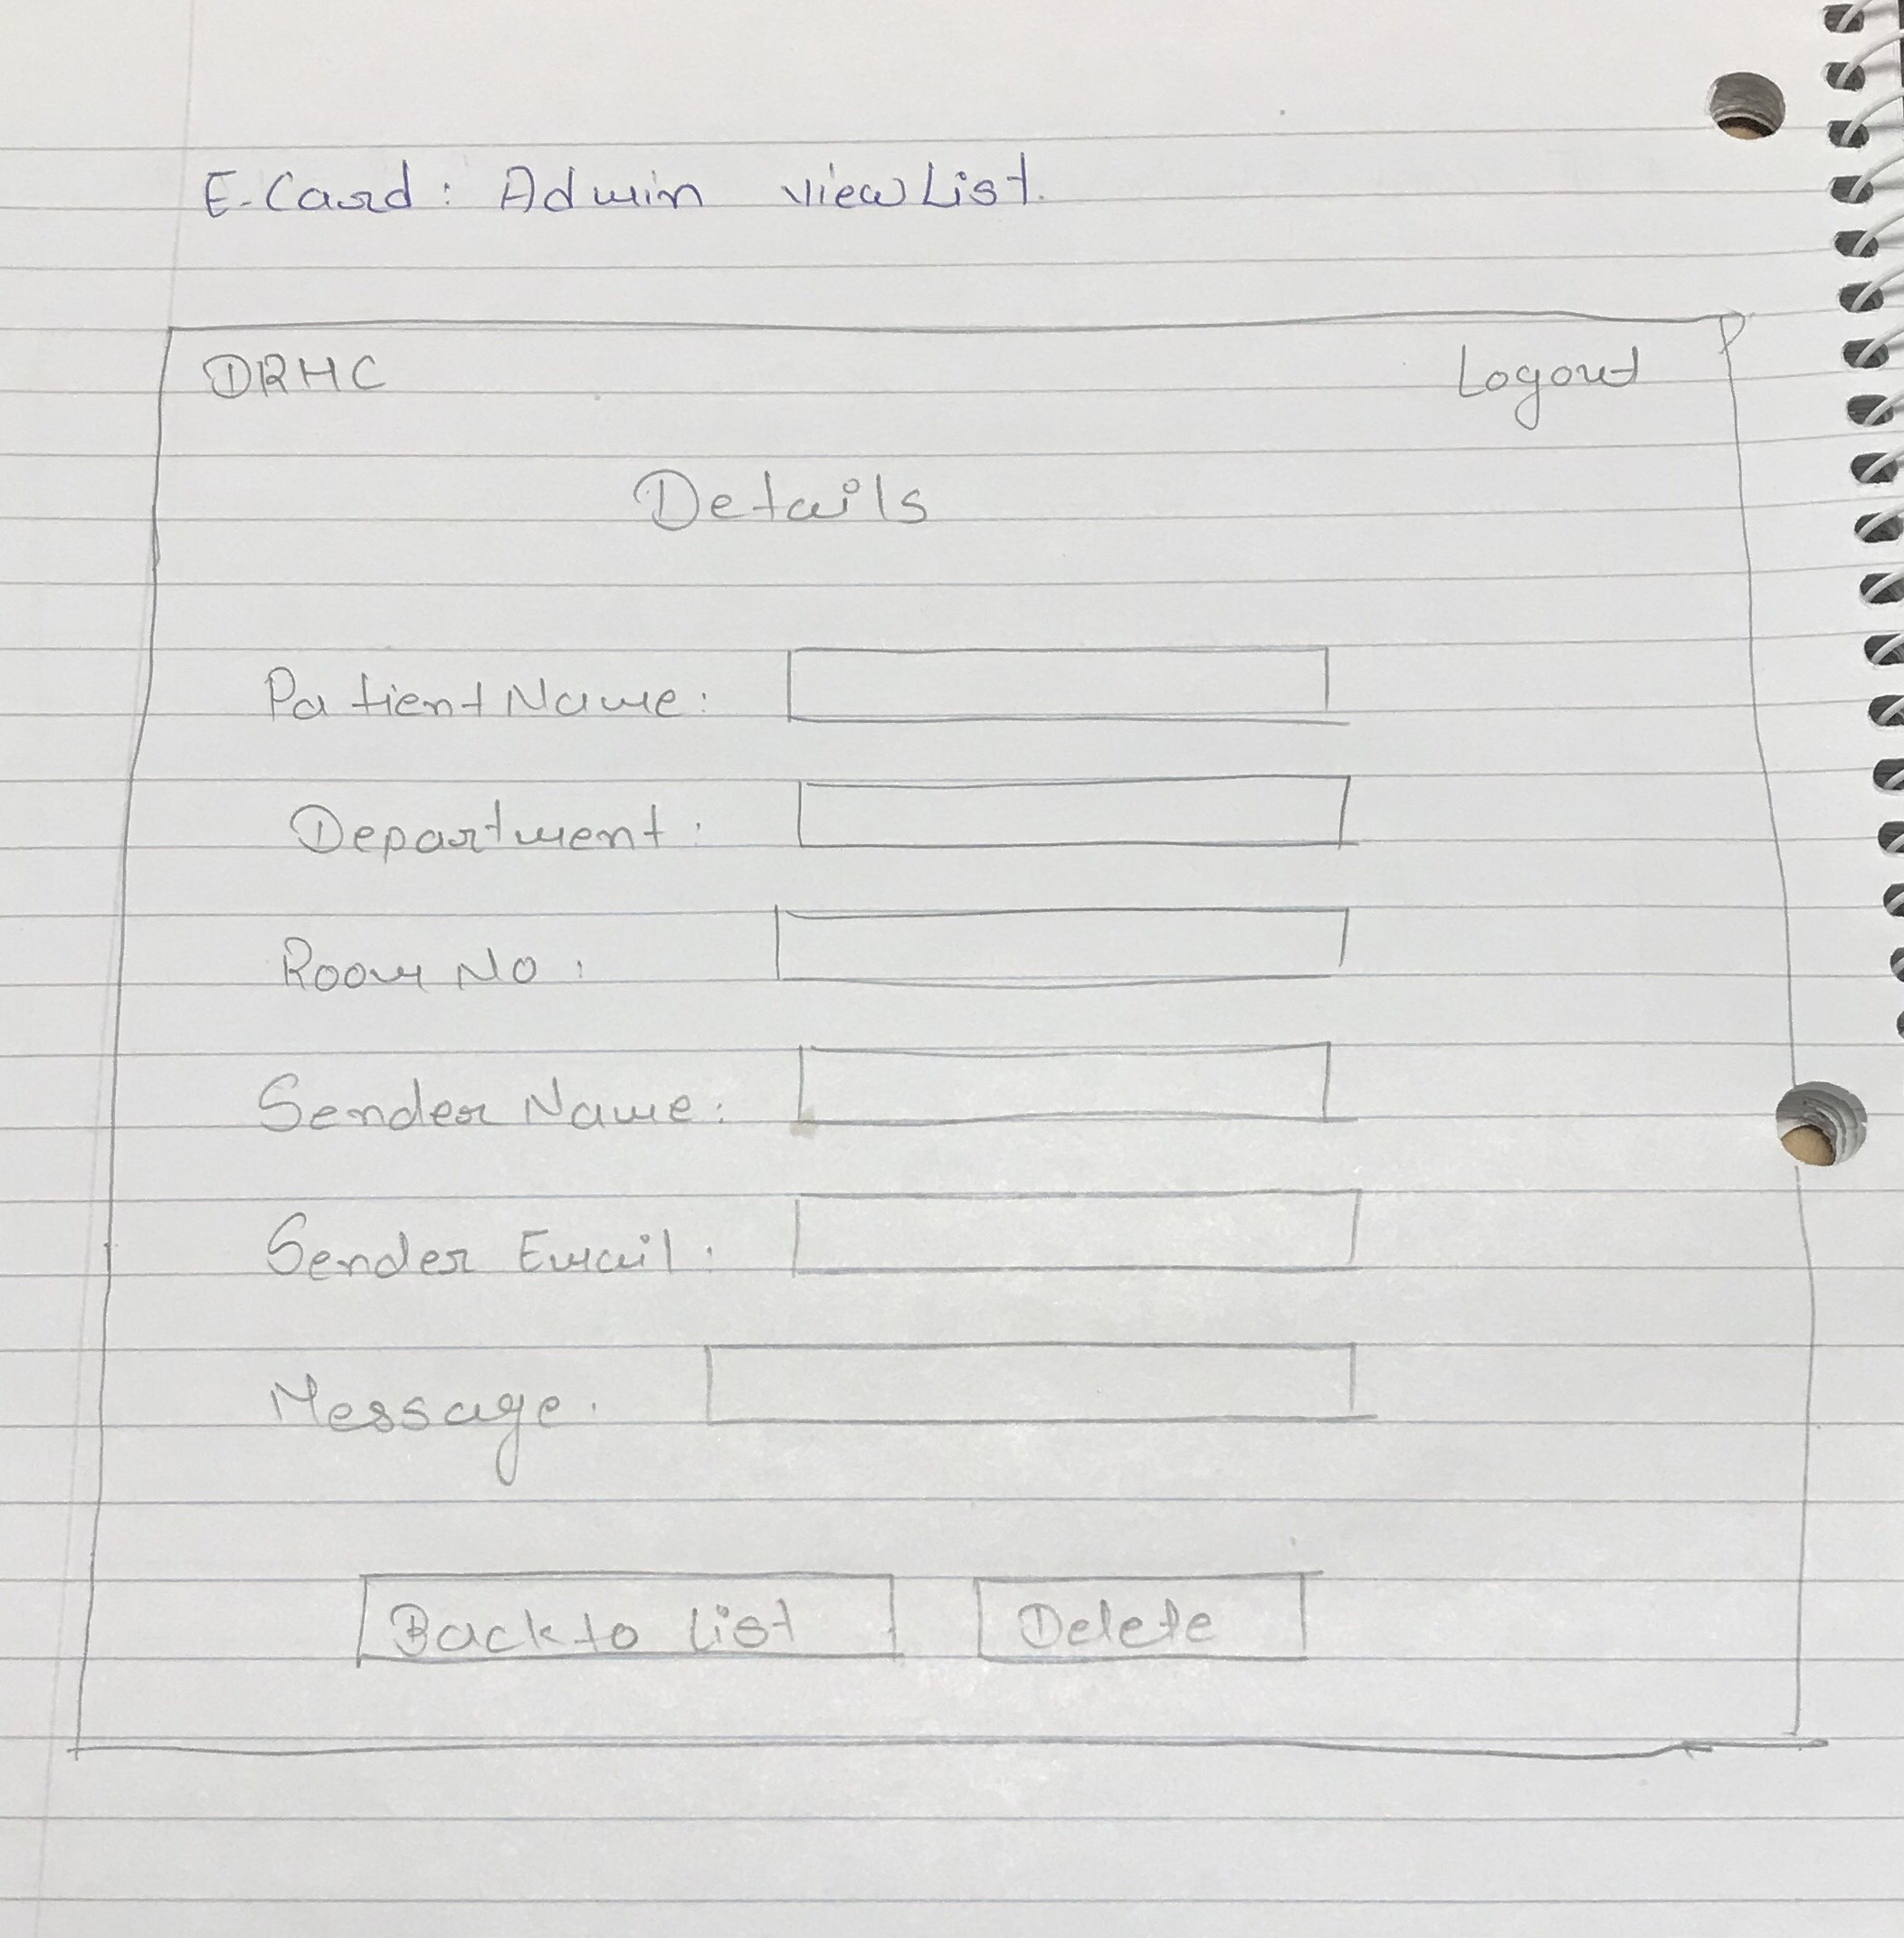 E-Card: Admin view List.
DRHC Logout
Details
Patient Name:
Department:
Room No:
Sender Name:
Sender Email:
Message:
Back to List Delete